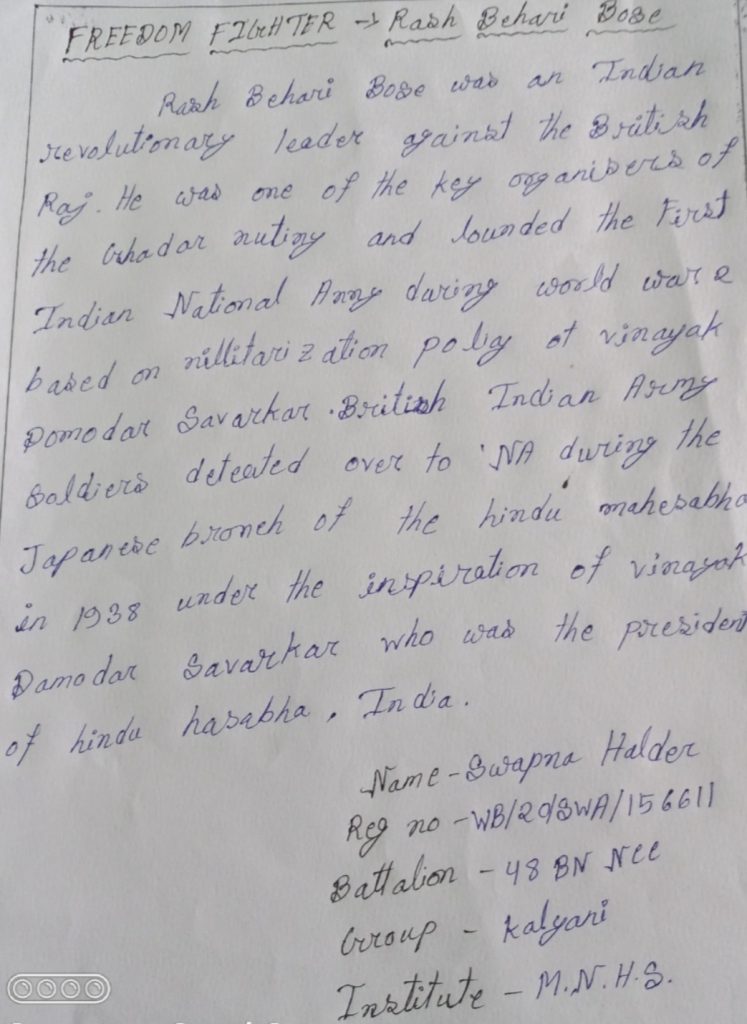 FREEDOM FIGHTER → Rash Behari Bose
Rash Behari Bose was an Indian
revolutionary leader against the British
Raj. He was one of the key organisers of
the Ghadar nutiny and lounded the First
Indian National Anny during world war 2
based on nillitarization policy ot vinayak
Domodar Savarkar. British Indian Army
Soldiers deteated over to 'NA during the
Japanese bronch of the hindu mahesabha
in 1938 under the inspiration of vinayak
Damodar Savarkar who was the president
of hindu hasabha, India.
Name - Swapna Halder
Reg no - WB/20/SWA/156611
Battalion - 48 BN NCC
Group - Kalyani
Institute - M.N.H.S.